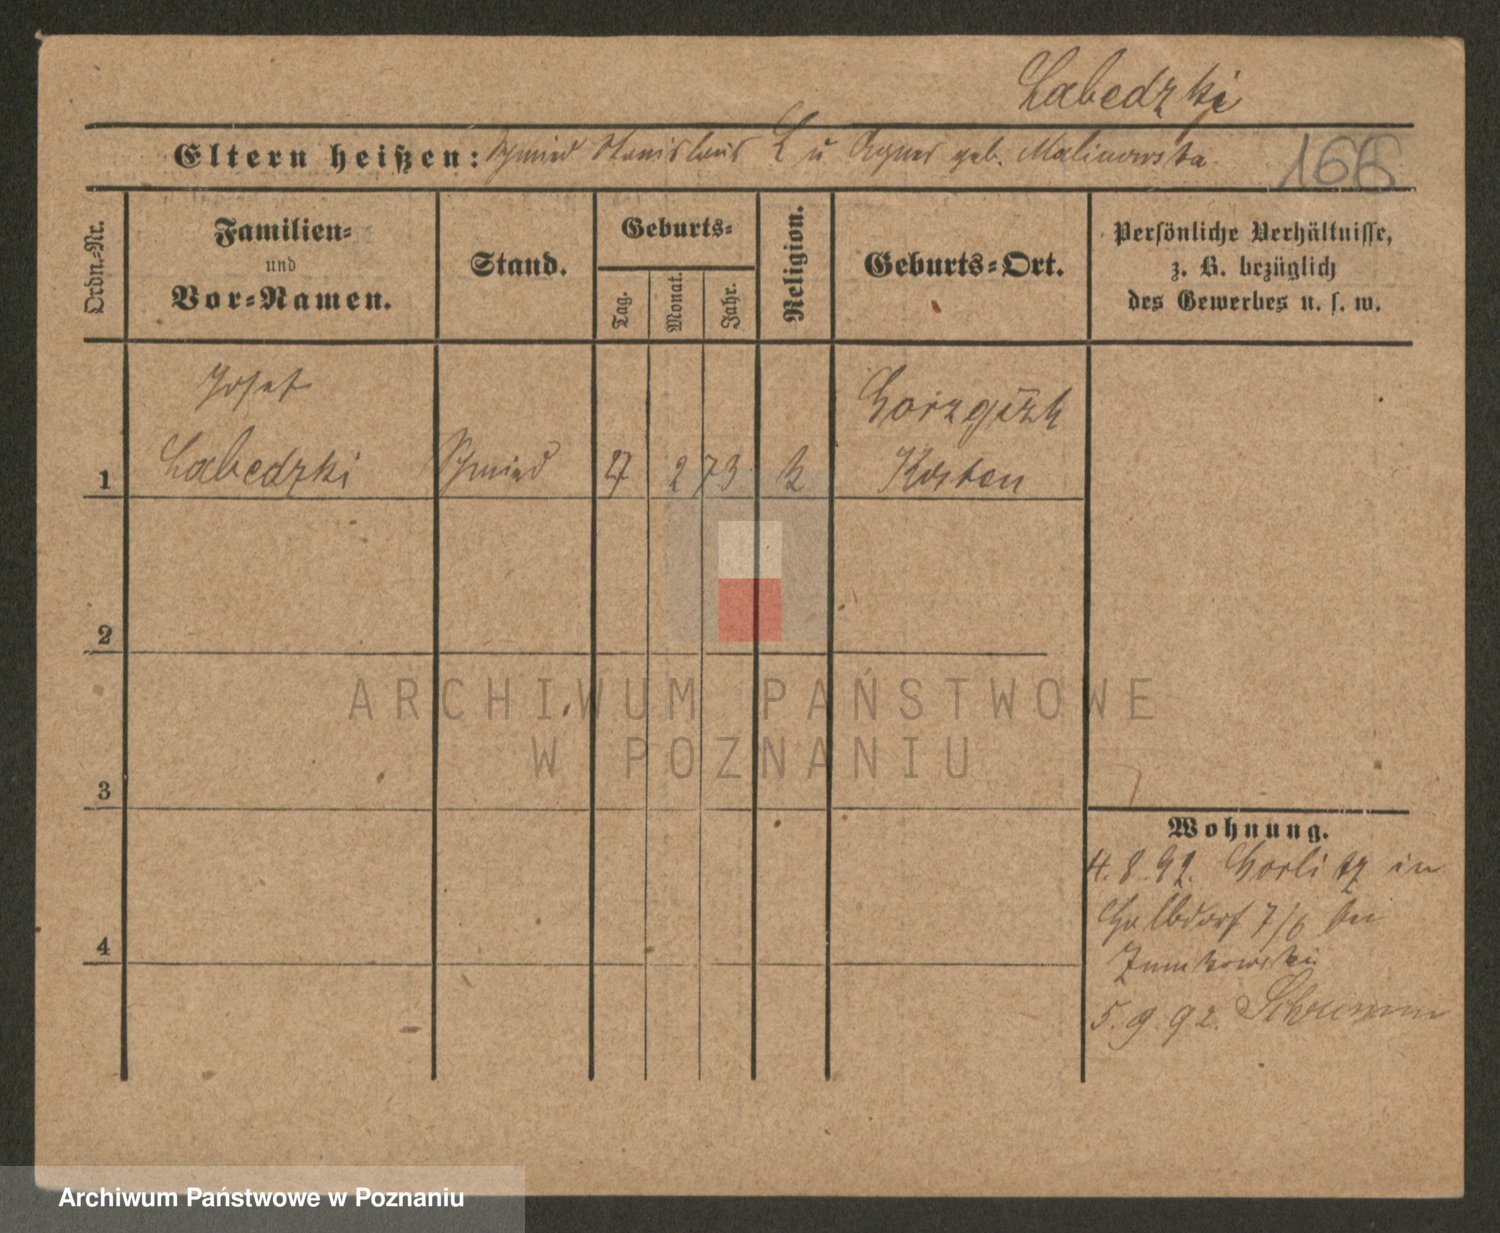 Labedzki
Eltern heißen: Schmied Stanislaus L u Agnes geb. Malinowska
166
Ordn.-Nr.
Familien-
und
Vor-Namen.
Stand.
Geburts-
Tag.
Monat.
Jahr.
Religion.
Geburts-Ort.
Persönliche Verhältnisse,
z. B. bezüglich
des Gewerbes u. s. w.
Josef
1 Labedzki Schmied 27 2 73 k Kosten
2
3
4
Wohnung.
4. 8. 92. in
7/6 bei
5. 9. 92. Schrimm
ARCHIWUM PAŃSTWOWE
W POZNANIU
Archiwum Państwowe w Poznaniu